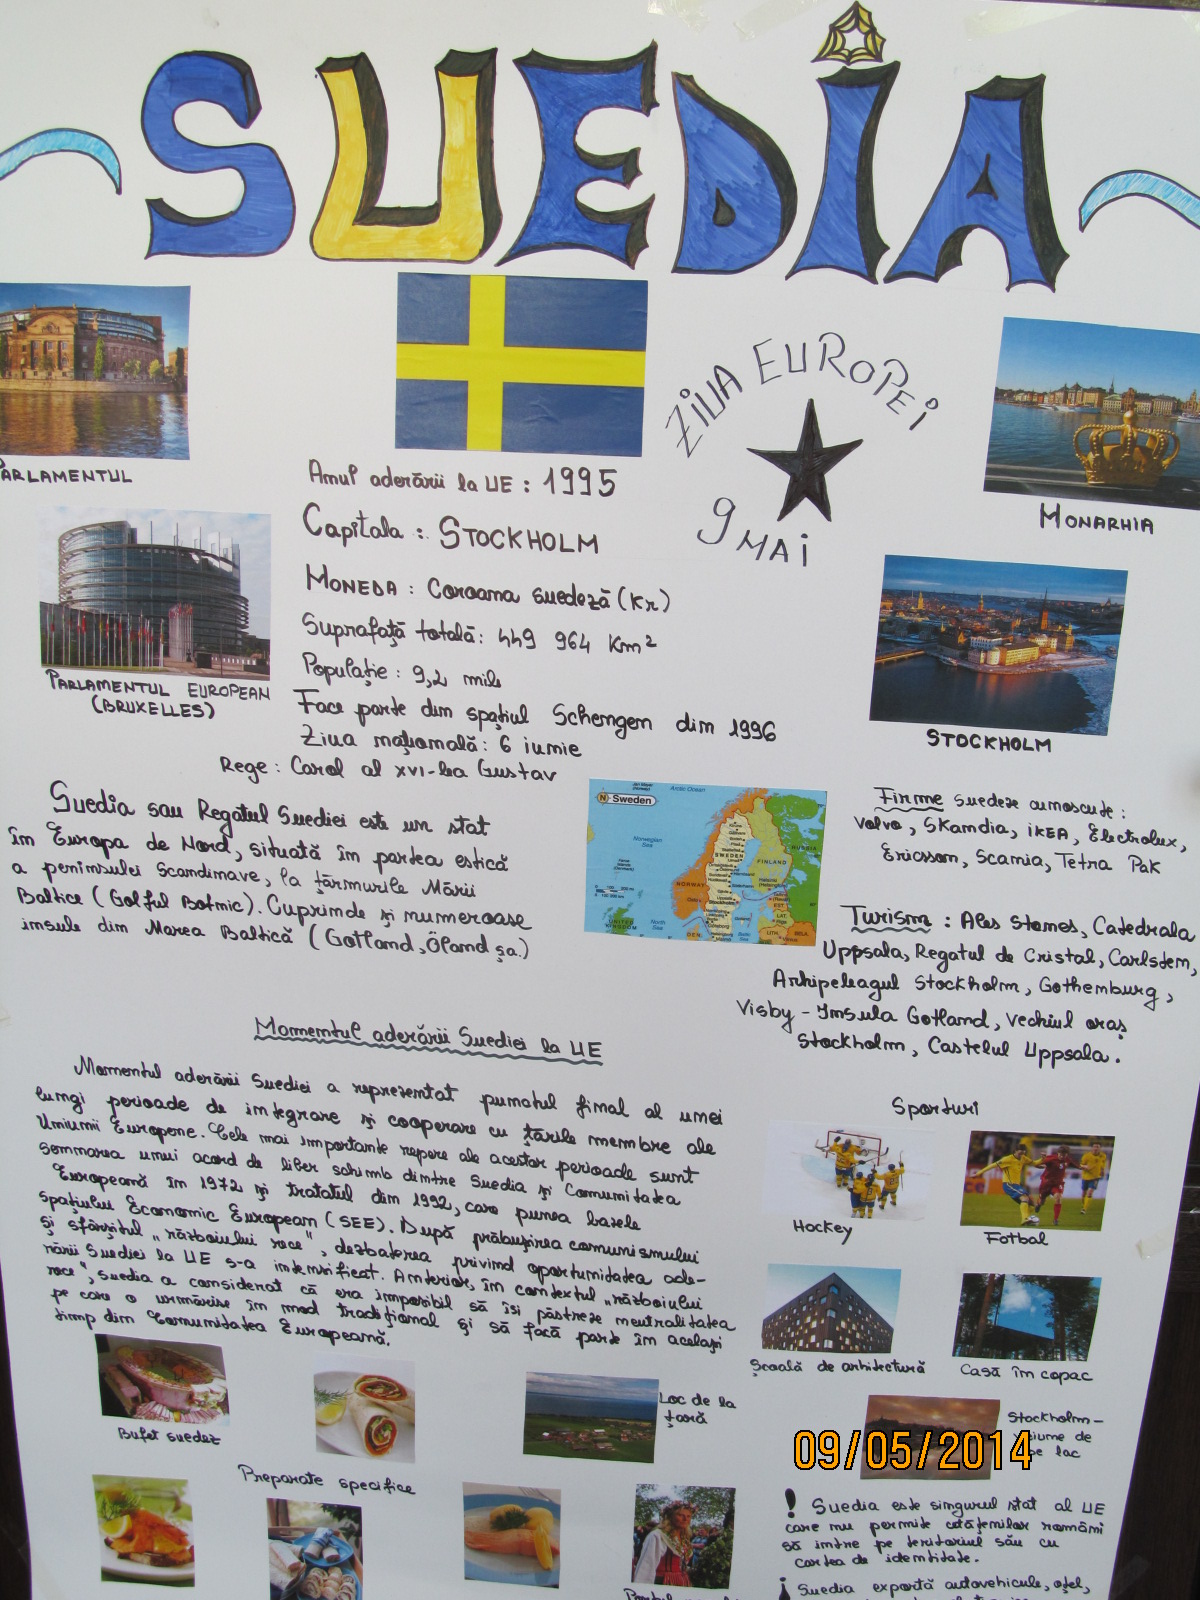 SUEDIA
ZIUA EUROPEI
9 MAI
PARLAMENTUL
Anul aderării la UE : 1995
Capitala : STOCKHOLM
MONEDA : Coroana suedeză (Kr)
Suprafață totală : 449 964 Km²
Populație : 9,2 mil
Face parte din spațiul Schengen din 1996
Ziua națională : 6 iunie
Rege : Carol al XVI-lea Gustav
MONARHIA
PARLAMENTUL EUROPEAN
(BRUXELLES)
STOCKHOLM
Suedia sau Regatul Suediei este un stat
în Europa de Nord, situată în partea estică
a peninsulei Scandinave, la țărmurile Mării
Baltice (Golful Botnic). Cuprinde și numeroase
insule din Marea Baltică (Gotland, Öland șa.)
N Sweden
Arctic Ocean
Norwegian
Sea
SWEDEN
FINLAND
NORWAY
RUSSIA
North
Sea
UNITED
KINGDOM
Stockholm
Firme suedeze cunoscute :
Volvo, Skandia, iKEA, Electrolux,
Ericsson, Scania, Tetra Pak
Turism : Ales Stones, Catedrala
Uppsala, Regatul de Cristal, Carlsten,
Arhipeleagul Stockholm, Gothenburg,
Visby - Insula Gotland, Vechiul oraș
Stockholm, Castelul Uppsala.
Momentul aderării Suediei la UE
Momentul aderării Suediei a reprezentat punctul final al unei
lungi perioade de integrare și cooperare cu țările membre ale
Uniunii Europene. Cele mai importante repere ale acestor perioade sunt
semnarea unui acord de liber schimb dintre Suedia și Comunitatea
Europeană în 1972 și tratatul din 1992, care punea bazele
spațiului Economic European (SEE). După prăbușirea comunismului
și sfârșitul „războiului rece", dezbaterea privind oportunitatea ade-
rării Suediei la UE s-a intensificat. Anterior, în contextul „războiului
rece", Suedia a considerat că era imposibil să își păstreze neutralitatea
pe care o urmărise în mod tradițional și să facă parte în același
timp din Comunitatea Europeană.
Sporturi
Hockey
Fotbal
Școală de arhitectură
Casă în copac
Bufet suedez
Preparate specifice
Loc de la
țară
Stockholm -
pe lac
09/05/2014
! Suedia este singurul stat al UE
care nu permite cetățenilor români
să intre pe teritoriul său cu
cartea de identitate.
¡ Suedia exportă autovehicule, oțel,